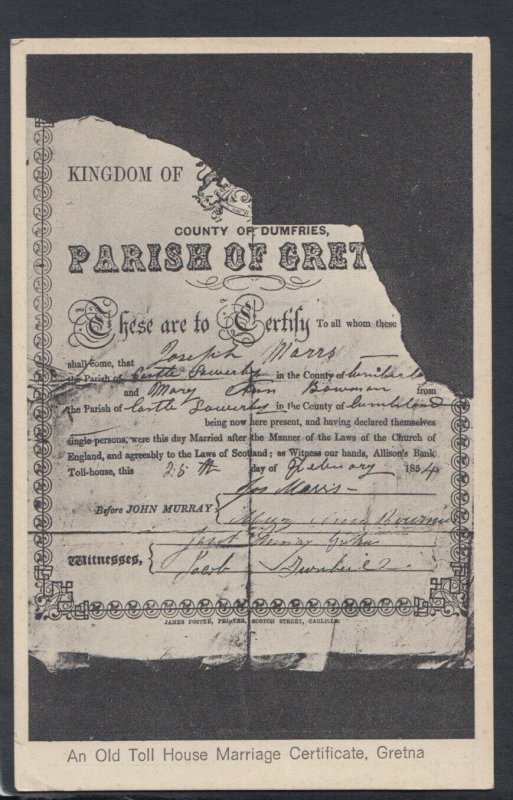 KINGDOM OF
COUNTY OF DUMFRIES,
PARISH OF GRET
These are to Certify To all whom these
shall come, that Joseph Marrs
the Parish of Castle Sowerby in the County of
and Mary Ann Bowman from
the Parish of Castle Sowerby in the County of Cumberland
being now here present, and having declared themselves
single persons, were this day Married after the Manner of the Laws of the Church of
England, and agreeably to the Laws of Scotland; as Witness our hands, Allison's Bank
Toll-house, this 25th day of February 1854
Jos Marrs
Before JOHN MURRAY
Mary Ann Bowman
Witnesses,
Jacob
JAMES FOSTER, PRINTER, SCOTCH STREET, CARLISLE.
An Old Toll House Marriage Certificate, Gretna